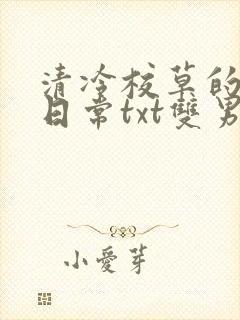 清冷校草的
日常txt雙男
小愛芽